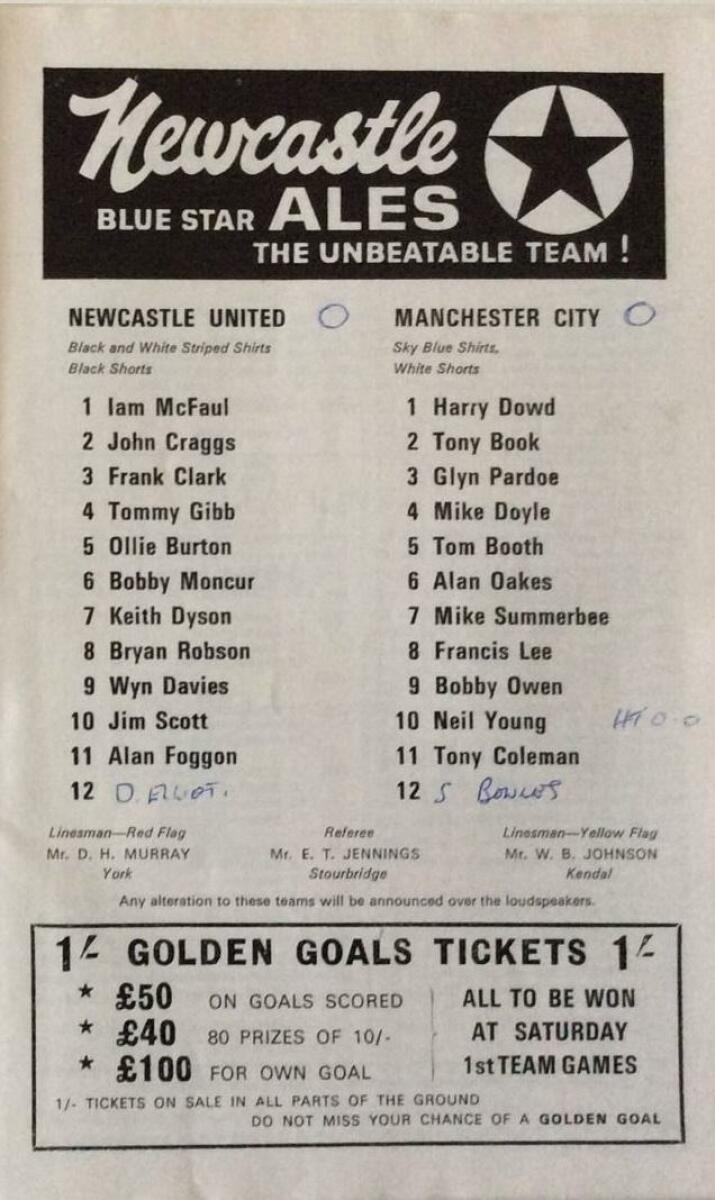 Newcastle
BLUE STAR ALES
THE UNBEATABLE TEAM !
NEWCASTLE UNITED 0
Black and White Striped Shirts
Black Shorts
1 Iam McFaul
2 John Craggs
3 Frank Clark
4 Tommy Gibb
5 Ollie Burton
6 Bobby Moncur
7 Keith Dyson
8 Bryan Robson
9 Wyn Davies
10 Jim Scott
11 Alan Foggon
12 D. ELLIOT.
MANCHESTER CITY 0
Sky Blue Shirts,
White Shorts
1 Harry Dowd
2 Tony Book
3 Glyn Pardoe
4 Mike Doyle
5 Tom Booth
6 Alan Oakes
7 Mike Summerbee
8 Francis Lee
9 Bobby Owen
10 Neil Young HT 0-0
11 Tony Coleman
12 S BOWLES
Linesman—Red Flag
Mr. D. H. MURRAY
York
Referee
Mr. E. T. JENNINGS
Stourbridge
Linesman—Yellow Flag
Mr. W. B. JOHNSON
Kendal
Any alteration to these teams will be announced over the loudspeakers.
1/- GOLDEN GOALS TICKETS 1/-
★ £50 ON GOALS SCORED
★ £40 80 PRIZES OF 10/-
★ £100 FOR OWN GOAL
ALL TO BE WON
AT SATURDAY
1st TEAM GAMES
1/- TICKETS ON SALE IN ALL PARTS OF THE GROUND
DO NOT MISS YOUR CHANCE OF A GOLDEN GOAL